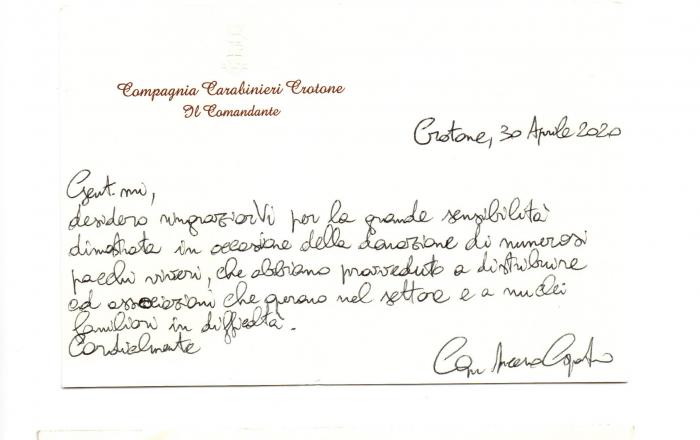 Compagnia Carabinieri Crotone
Il Comandante
Crotone, 30 Aprile 2020
Gent.mi,
desidero ringraziarVi per la grande sensibilità
dimostrata in occasione della donazione di numerosi
pacchi viveri, che abbiamo provveduto a distribuire
ad associazioni che operano nel settore e a nuclei
familiari in difficoltà.
Cordialmente